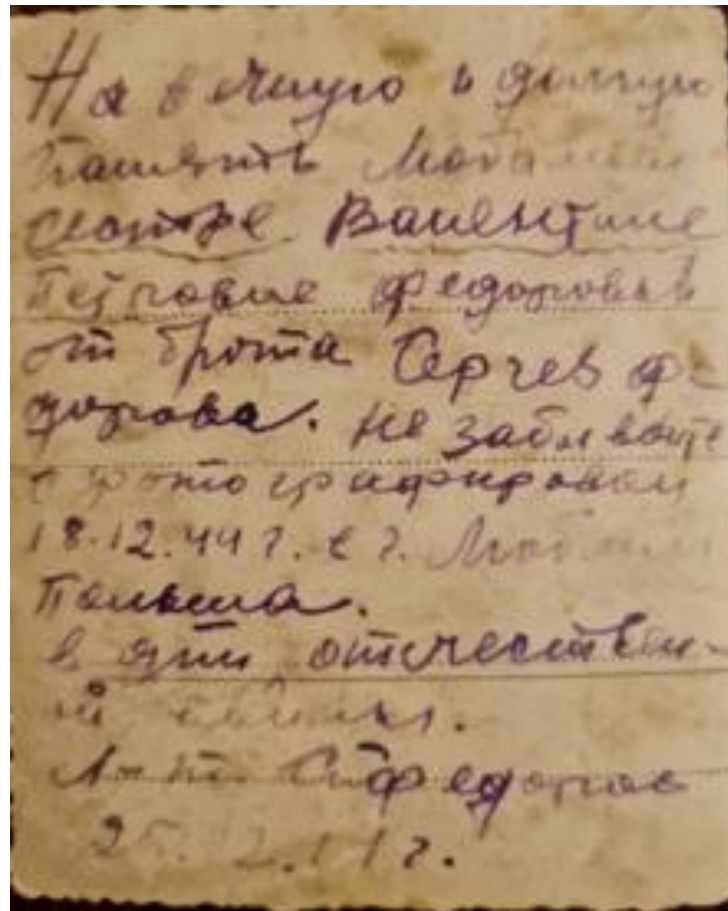 На вечную и долгую
память Любимой
сестре Валентине
Петровне Федоровой
от брата Сергея Фе-
дорова. Не забывайте
сфотографирован
18.12.44 г. в г. Люблин
Польша.
в дни отечествен-
ой войны.
Федоров
25.12.44 г.